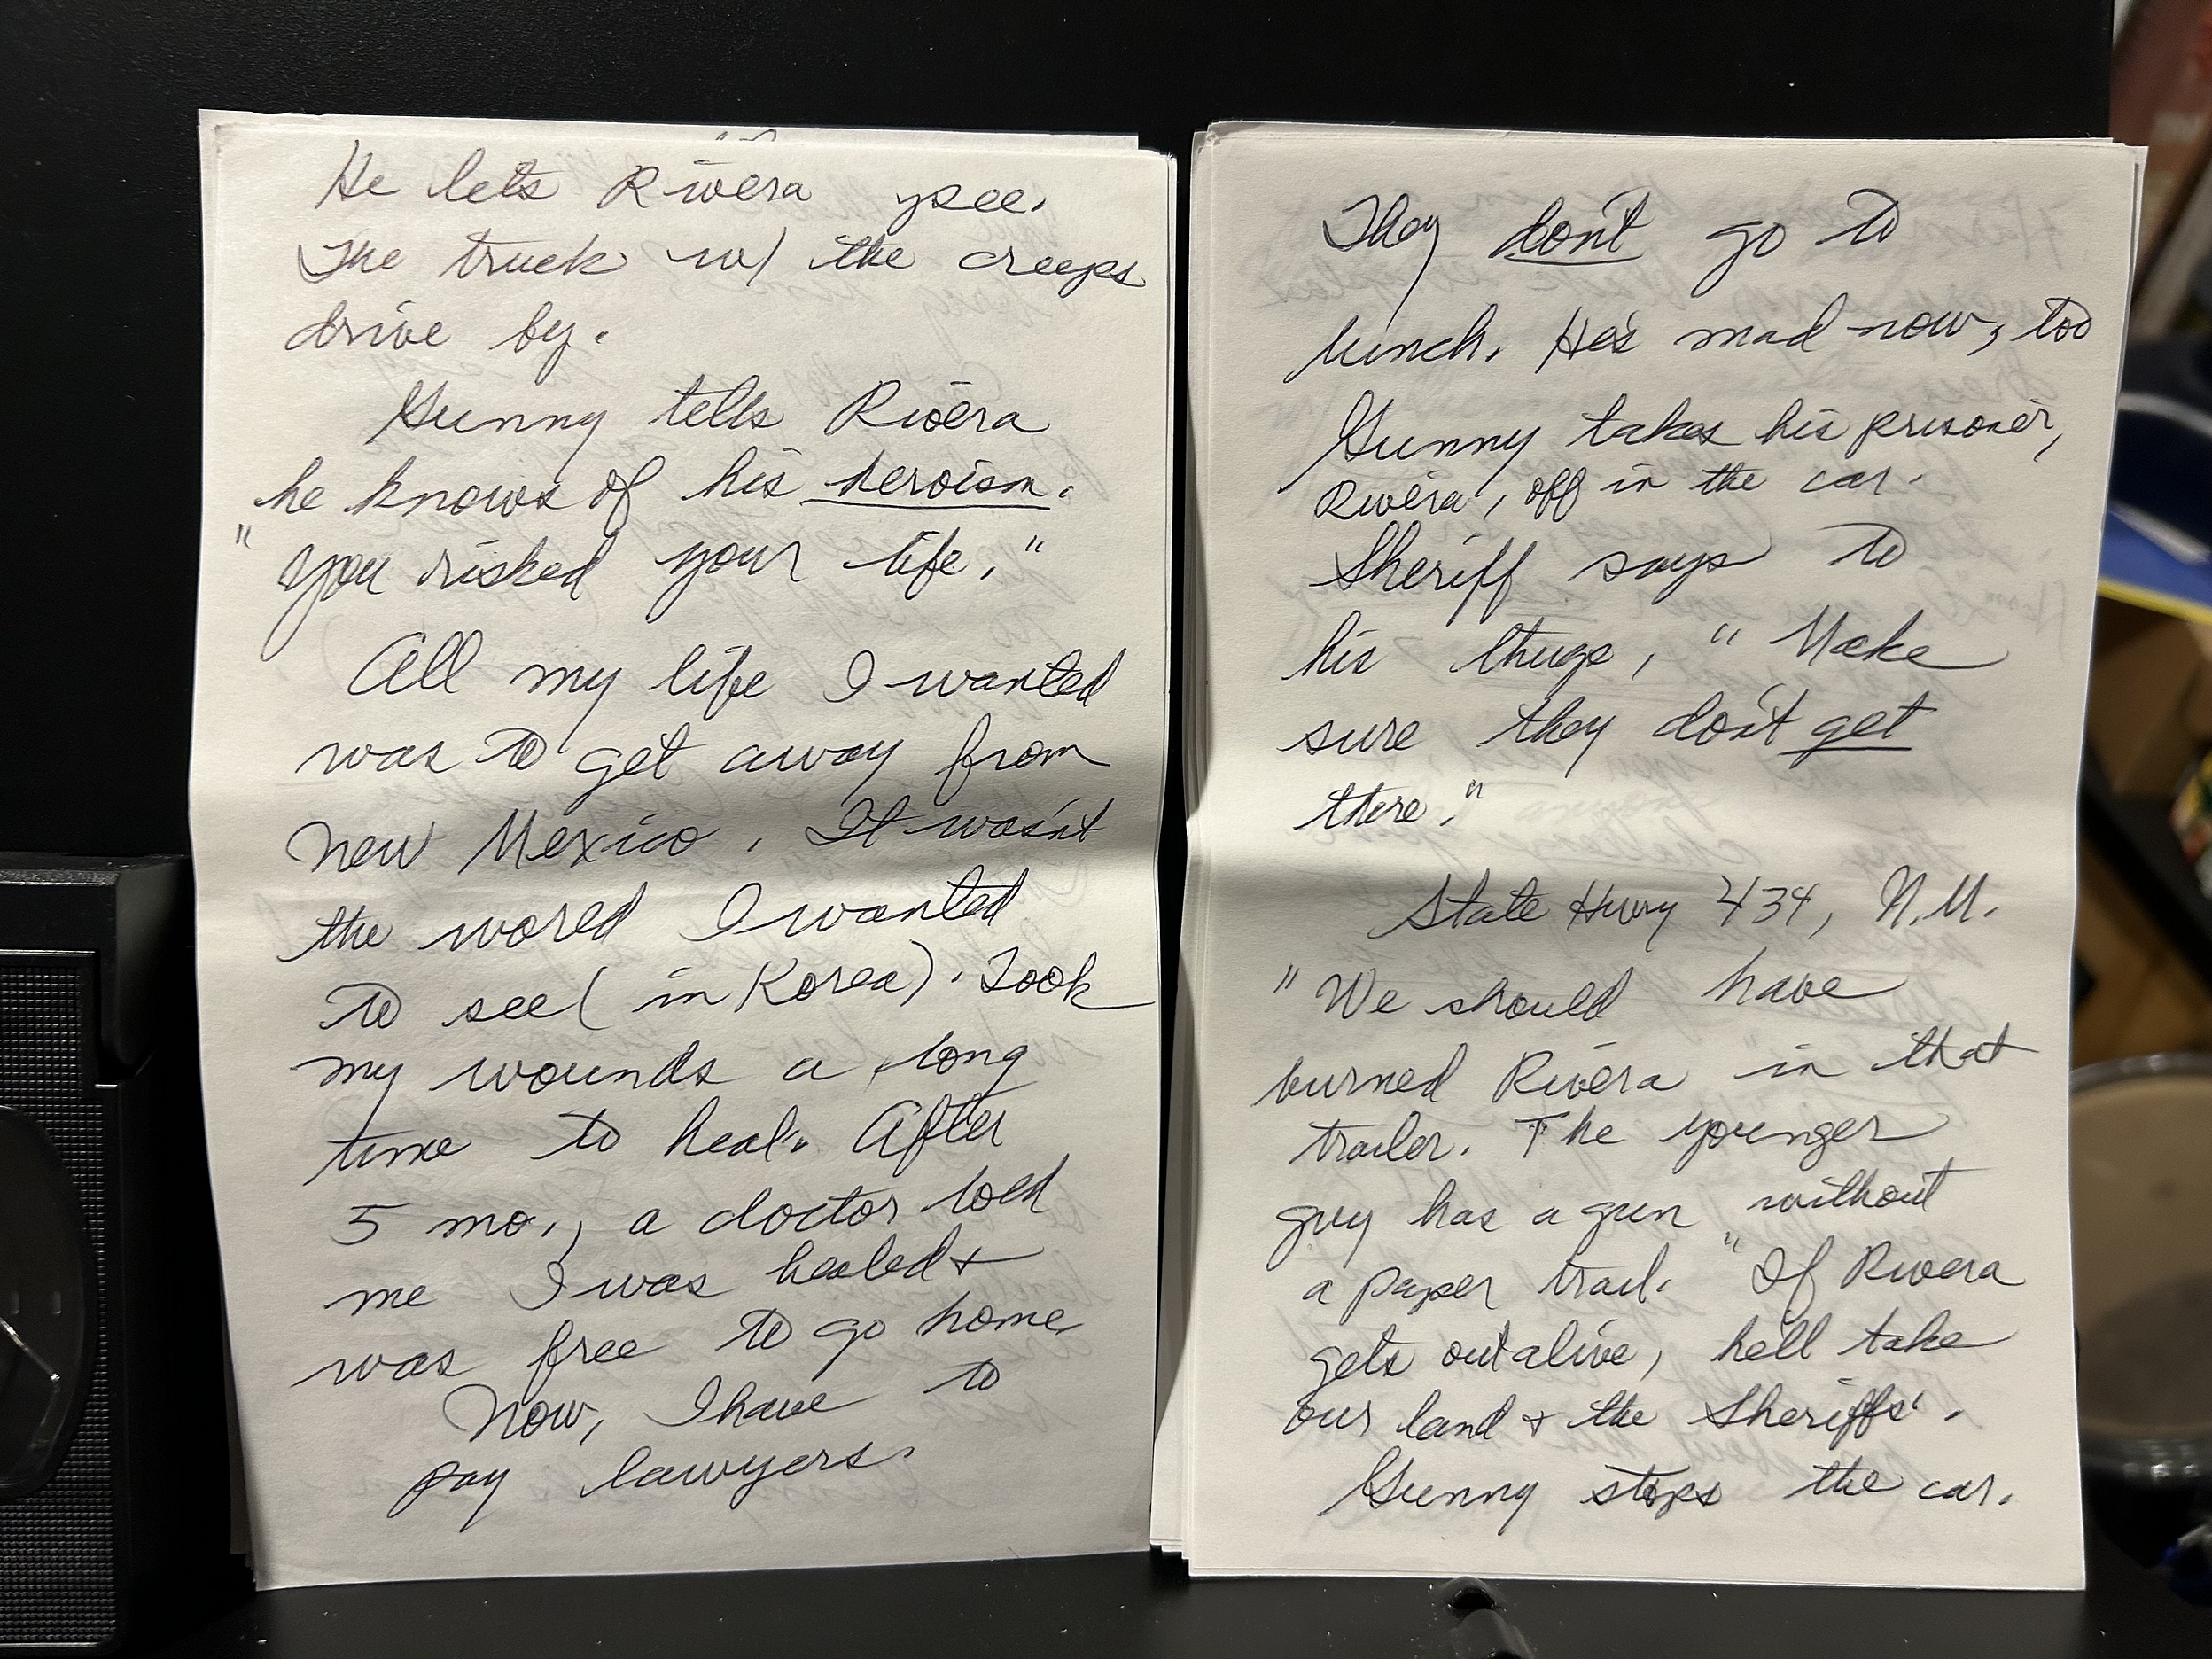 He lets Rivera pee.
The truck w/ the creeps
drive by.
Gunny tells Rivera
he knows of his heroism.
"You risked your life."
All my life I wanted
was to get away from
New Mexico. It wasn't
the world I wanted
to see (in Korea). Took
my wounds a long
time to heal. After
5 mo., a doctor told
me I was healed &
was free to go home
Now, I have to
pay lawyers.
They don't go to
lunch. He's mad now, too
Gunny takes his prisoner,
Rivera, off in the car.
Sheriff says to
his thugs, "Make
sure they don't get
there."
State Hwy 434, N.M.
"We should have
burned Rivera in that
trailer. The younger
guy has a gun without
a paper trail. "If Rivera
gets out alive, he'll take
our land & the Sheriffs'.
Gunny stops the car.